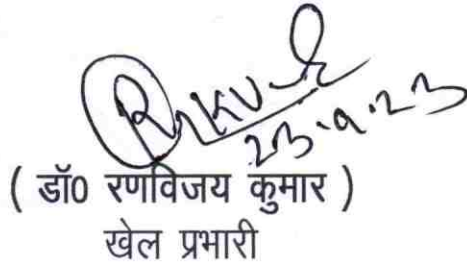 23.9.23
( डॉ0 रणविजय कुमार )
खेल प्रभारी